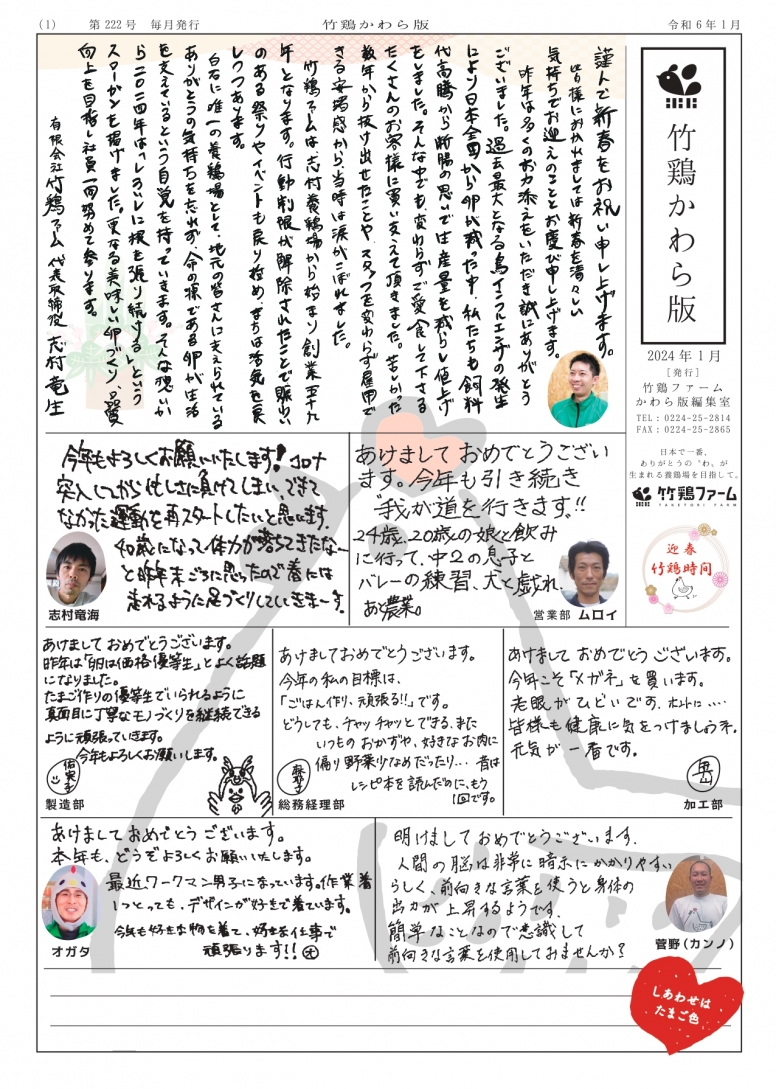 (1)
第 222 号 毎月発行
竹鶏かわら版
令和 6 年 1 月
竹鶏かわら版
2024 年 1 月
［発行］
竹鶏ファーム
かわら版編集室
TEL : 0224-25-2814
FAX : 0224-25-2865
日本で一番、
ありがとうの〝わ〟が
生まれる養鶏場を目指して。
竹鶏ファーム
TAKETORI FARM
迎春
竹鶏時間
謹んで新春をお祝い申し上げます。
皆様におかれましては新春を清々しい
気持ちでお迎えのこととお慶び申し上げます。
昨年は多くのお力添えをいただき誠にありがとう
ございました。過去最大となる鳥インフルエンザの発生
により日本全国から卵が減った中、私たちも飼料
代高騰から断腸の思いで生産量を減らし値上げ
をしました。そんな中でも変わらずご愛食して下さる
たくさんのお客様に買い支えて頂きました。苦しかった
数年から抜け出せたことや、スタッフを変わらず雇用で
きる安堵感から、当時は涙がこぼれました。
竹鶏ファームは、志村養鶏場から始まり創業五十九
年となります。行動制限が解除されたことで賑わい
のある祭りやイベントも戻り始め、まちは活気を戻
しつつあります。
白石に唯一の養鶏場として、地元の皆さんに支えられている
ありがとうの気持ちを忘れず、命の源である卵が生活
を支えているという自覚を持っていきます。そんな想いか
ら二〇二四年は「しろいしに根を張り続ける」という
スローガンを掲げました。更なる美味しい卵づくり、品質
向上を目指し社員一同努めて参ります。
有限会社 竹鶏ファーム 代表取締役 志村竜生
今年もよろしくお願いいたします！コロナ
突入してから忙しさに負けてしまい、できて
なかった運動を再スタートしたいと思います。
40歳になって体力が落ちてきたなー
と昨年末ごろに思ったので春には
走れるように足づくりしていきまーす。
志村竜海
あけまして おめでとうござい
ます。今年も引き続き
〝我が道を行きます〟!!
24歳と、20歳の娘と飲み
に行って、中2の息子と
バレーの練習、犬と戯れ、
あと農業。
営業部 ムロイ
あけまして おめでとうございます。
昨年は「卵は価格優等生」とよく話題
になりました。
たまご作りの優等生でいられるように
真面目に丁寧なモノづくりを継続できる
ように頑張っていきます。
今年もよろしくお願いします。
製造部
あけましておめでとうございます。
今年の私の目標は、
「ごはん作り、頑張る!!」です。
どうしても、チャッチャッとできる、また
いつものおかずや、好きなお肉に
偏り野菜少なめだったり… 昔は
レシピ本を読んだのに、もう
1回です。
総務経理部
あけまして おめでとう ございます。
今年こそ「メガネ」を買います。
老眼がひどいです。ホントに‥‥
皆様も健康に気をつけましょう。
元気が一番です。
岳
加工部
あけまして おめでとう ございます。
本年も、どうぞよろしくお願いいたします。
最近、ワークマン男子になっています。作業着
1つとっても、デザインが好きで着ています。
今年も好きな物を着て、好きな仕事で
頑張ります!!
オガタ
明けまして おめでとうございます。
人間の脳は非常に暗示にかかりやすい
らしく、前向きな言葉を使うと身体の
出力が上昇するようです。
簡単なことなので意識して
前向きな言葉を使用してみませんか？
菅野(カンノ)
しあわせは
たまご色